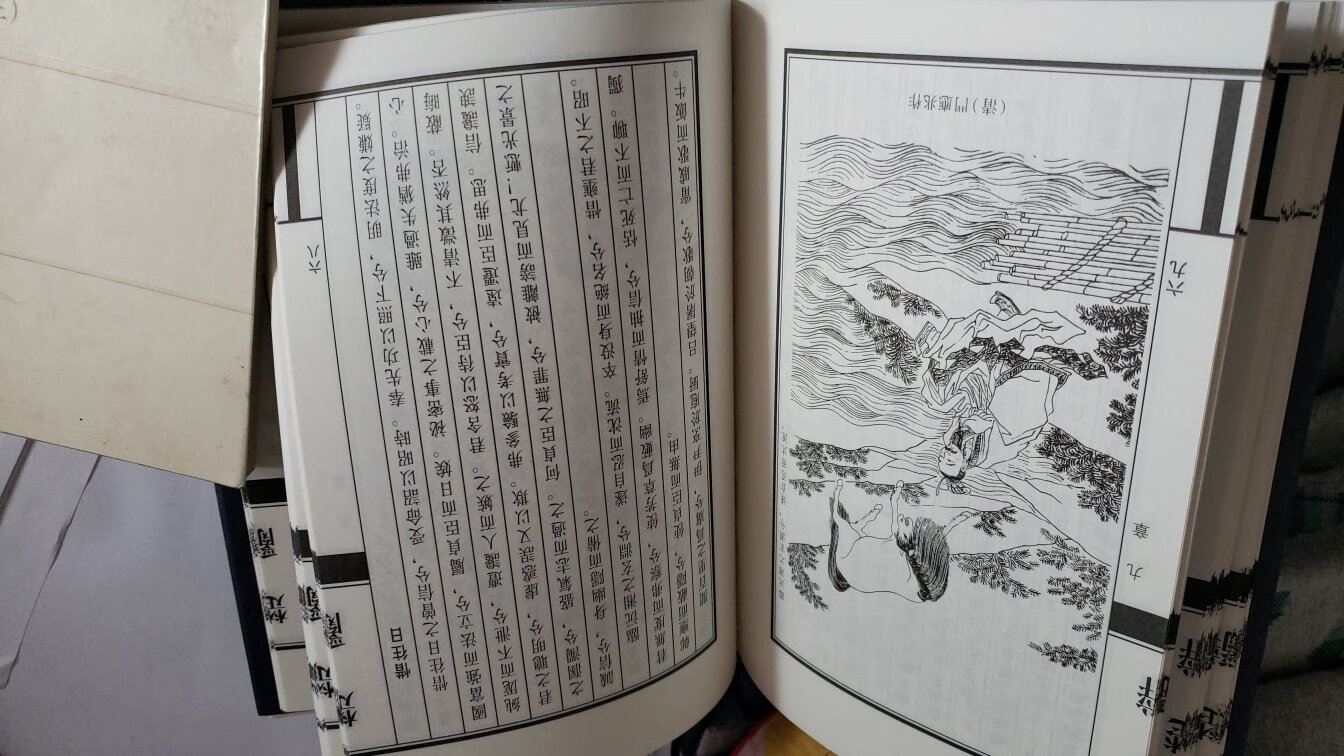 惜往日
惜往日之曾信兮，受命詔以昭時。奉先功以照下兮，明法度之嫌疑。
國富強而法立兮，屬貞臣而日娭。祕密事之載心兮，雖過失猶弗治。心
純厖而不泄兮，遭讒人而嫉之。君含怒以待臣兮，不清澈其然否。蔽晦
君之聰明兮，虛惑誤又以欺。弗參驗以考實兮，遠遷臣而弗思。信讒諛
之溷濁兮，盛氣志而過之。何貞臣之無罪兮，被離謗而見尤；慙光景之
誠信兮，身幽隱而備之。
臨沅湘之玄淵兮，遂自忍而沈流。卒没身而絶名兮，惜壅君之不昭。
君無度而弗察兮，使芳草爲藪幽。焉舒情而抽信兮，恬死亡而不聊。獨
鄣壅而蔽隱兮，使貞臣而無由。
聞百里之爲虜兮，伊尹烹於庖廚。呂望屠於朝歌兮，甯戚歌而飯牛。
六八
九章
六九
臨沅湘之玄淵兮，遂自忍而沈流
（清）門應兆作